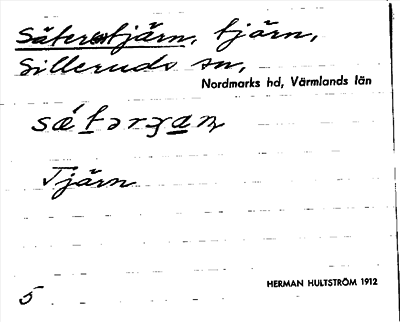 Säterstjärn, tjärn,
Silleruds sn,
Nordmarks hd, Värmlands län
Tjärn
HERMAN HULTSTRÖM 1912
5